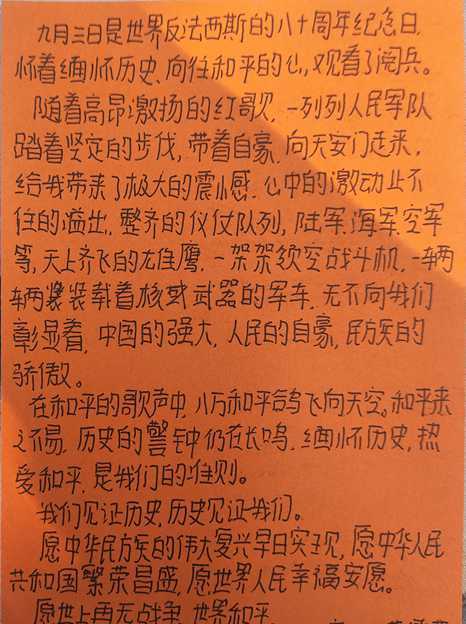 九月三日是世界反法西斯的八十周年纪念日,
怀着缅怀历史、向往和平的心,观看了阅兵。
随着高昂激扬的红歌,一列列人民军队
踏着坚定的步伐,带着自豪,向天安门走来,
给我带来了极大的震憾,心中的激动止不
住的溢出,整齐的仪仗队列,陆军、海军、空军
等,天上齐飞的雄鹰,一架架歼空战斗机,一辆
辆装载着核武器的军车,无不向我们
彰显着,中国的强大,人民的自豪,民族的
骄傲。
在和平的歌声中,八万和平鸽飞向天空。和平来
之不易,历史的警钟仍在长鸣,缅怀历史,热
爱和平,是我们的准则。
我们见证历史,历史见证我们。
愿中华民族的伟大复兴早日实现,愿中华人民
共和国繁荣昌盛,愿世界人民幸福安愿。
愿世上再无战争,世界和平。